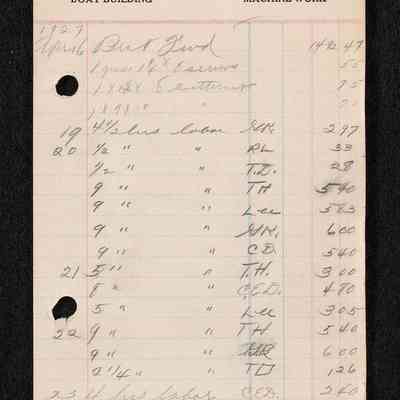 BOAT BUILDING MACHINE WORK
1927
Apr 16 Brt Fwd 1492 47
1 gross 1 1/4 X 8 screws 55
75
19 4 1/2 hrs labor G.H. 2 97
20 1/2 " " RL 33
1/2 " " T.D. 28
9 " " TH 5 40
9 " " Lee 5 83
9 " " G.H. 6 00
9 " " C.D. 5 40
21 5 " " T.H. 3 00
8 " " C.E.D. 4 80
5 " " Lee 3 05
22 9 " " TH 5 40
9 " " 6 00
2 1/4 " " TD 1 26
23 4 hrs labor C.E.D. 2 40